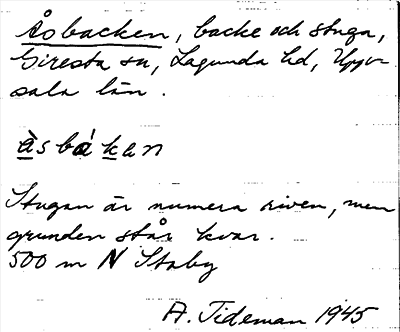 Åsbacken, backe och stuga,
Giresta sn, Lagunda hd, Upp-
sala län.
àsbákan
Stugan är numera riven, men
grunden står kvar.
500 m N Staby
A. Tideman 1945